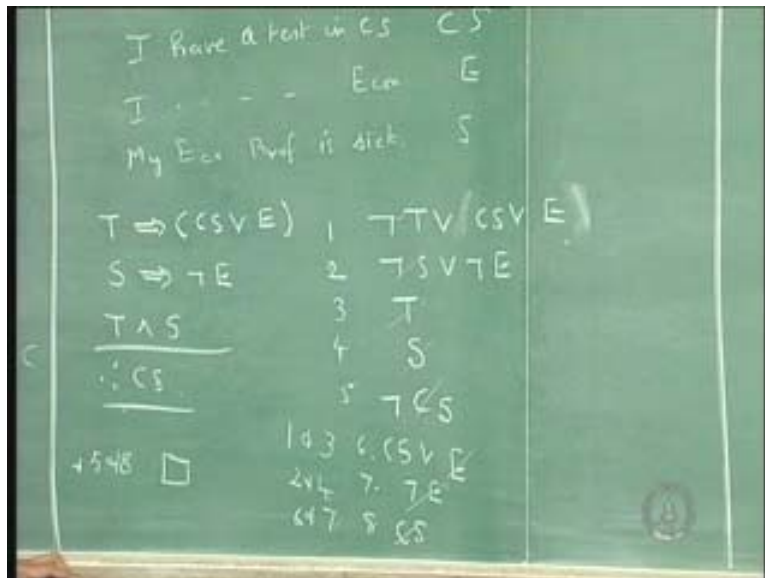 I have a test in CS CS
I . - - - Econ E
My Eco Prof is sick. S
T ⇒ (CS V E)
S ⇒ ¬E
T ∧ S
∴ CS
1 ¬T V (CS V E)
2 ¬S V ¬E
3 T
4 S
5 ¬CS
1&3 6. CS V E
2&4 7. ¬E
6&7 8 CS
5&8 □
C